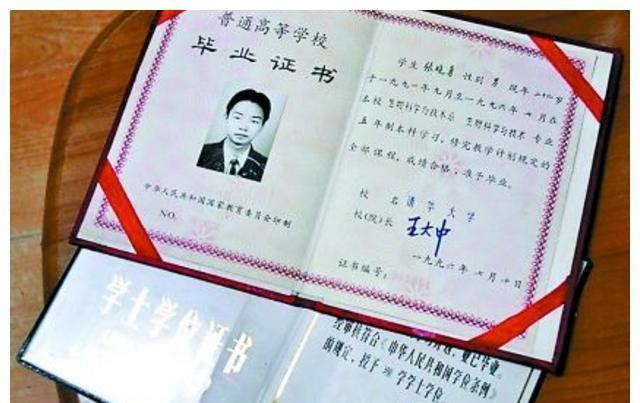 普通高等学校
毕业证书
中华人民共和国国家教育委员会印制
NO.
学生 张晓勇 性别 男 现年 二十二岁
于一九九一年九月至一九九六年 七 月在
本校 生物科学与技术系 生物科学与技术 专业
五年制本科学习，修完教学计划规定的
全部课程，成绩合格，准予毕业。
校 名 清华大学
校(院)长 王大中
证书编号:
一九九六年 七 月 十 日
学士学位证书
业已毕业。
经审核符合《中华人民共和国学位条例》
的规定，授予 理 学学士学位